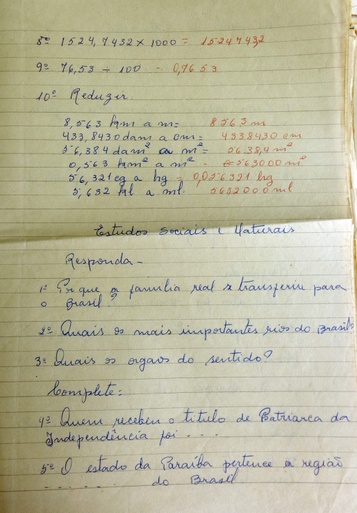 8º 1524,7432 x 1000 = 1524743,2
9º 76,53 ÷ 100 = 0,7653
10º Reduzir
8,563 km a m = 8563 m
433,8430 dam a cm = 4338430 cm
56,384 dam² a m² = 5638,4 m²
0,563 km² a m² = 563000 m²
56,321 cg a hg = 0,0056321 hg
5,632 kl a ml 5632000 ml
Estudos Sociais e Naturais
Responda -
1º Em que a família real se transferiu para
o Brasil?
2º Quais os mais importantes rios do Brasil?
3º Quais os orgaos do sentido?
Complete:
4º Quem recebeu o titulo de Patriarca da
Independência foi ....
5º O estado da Paraíba pertence a região
...... do Brasil